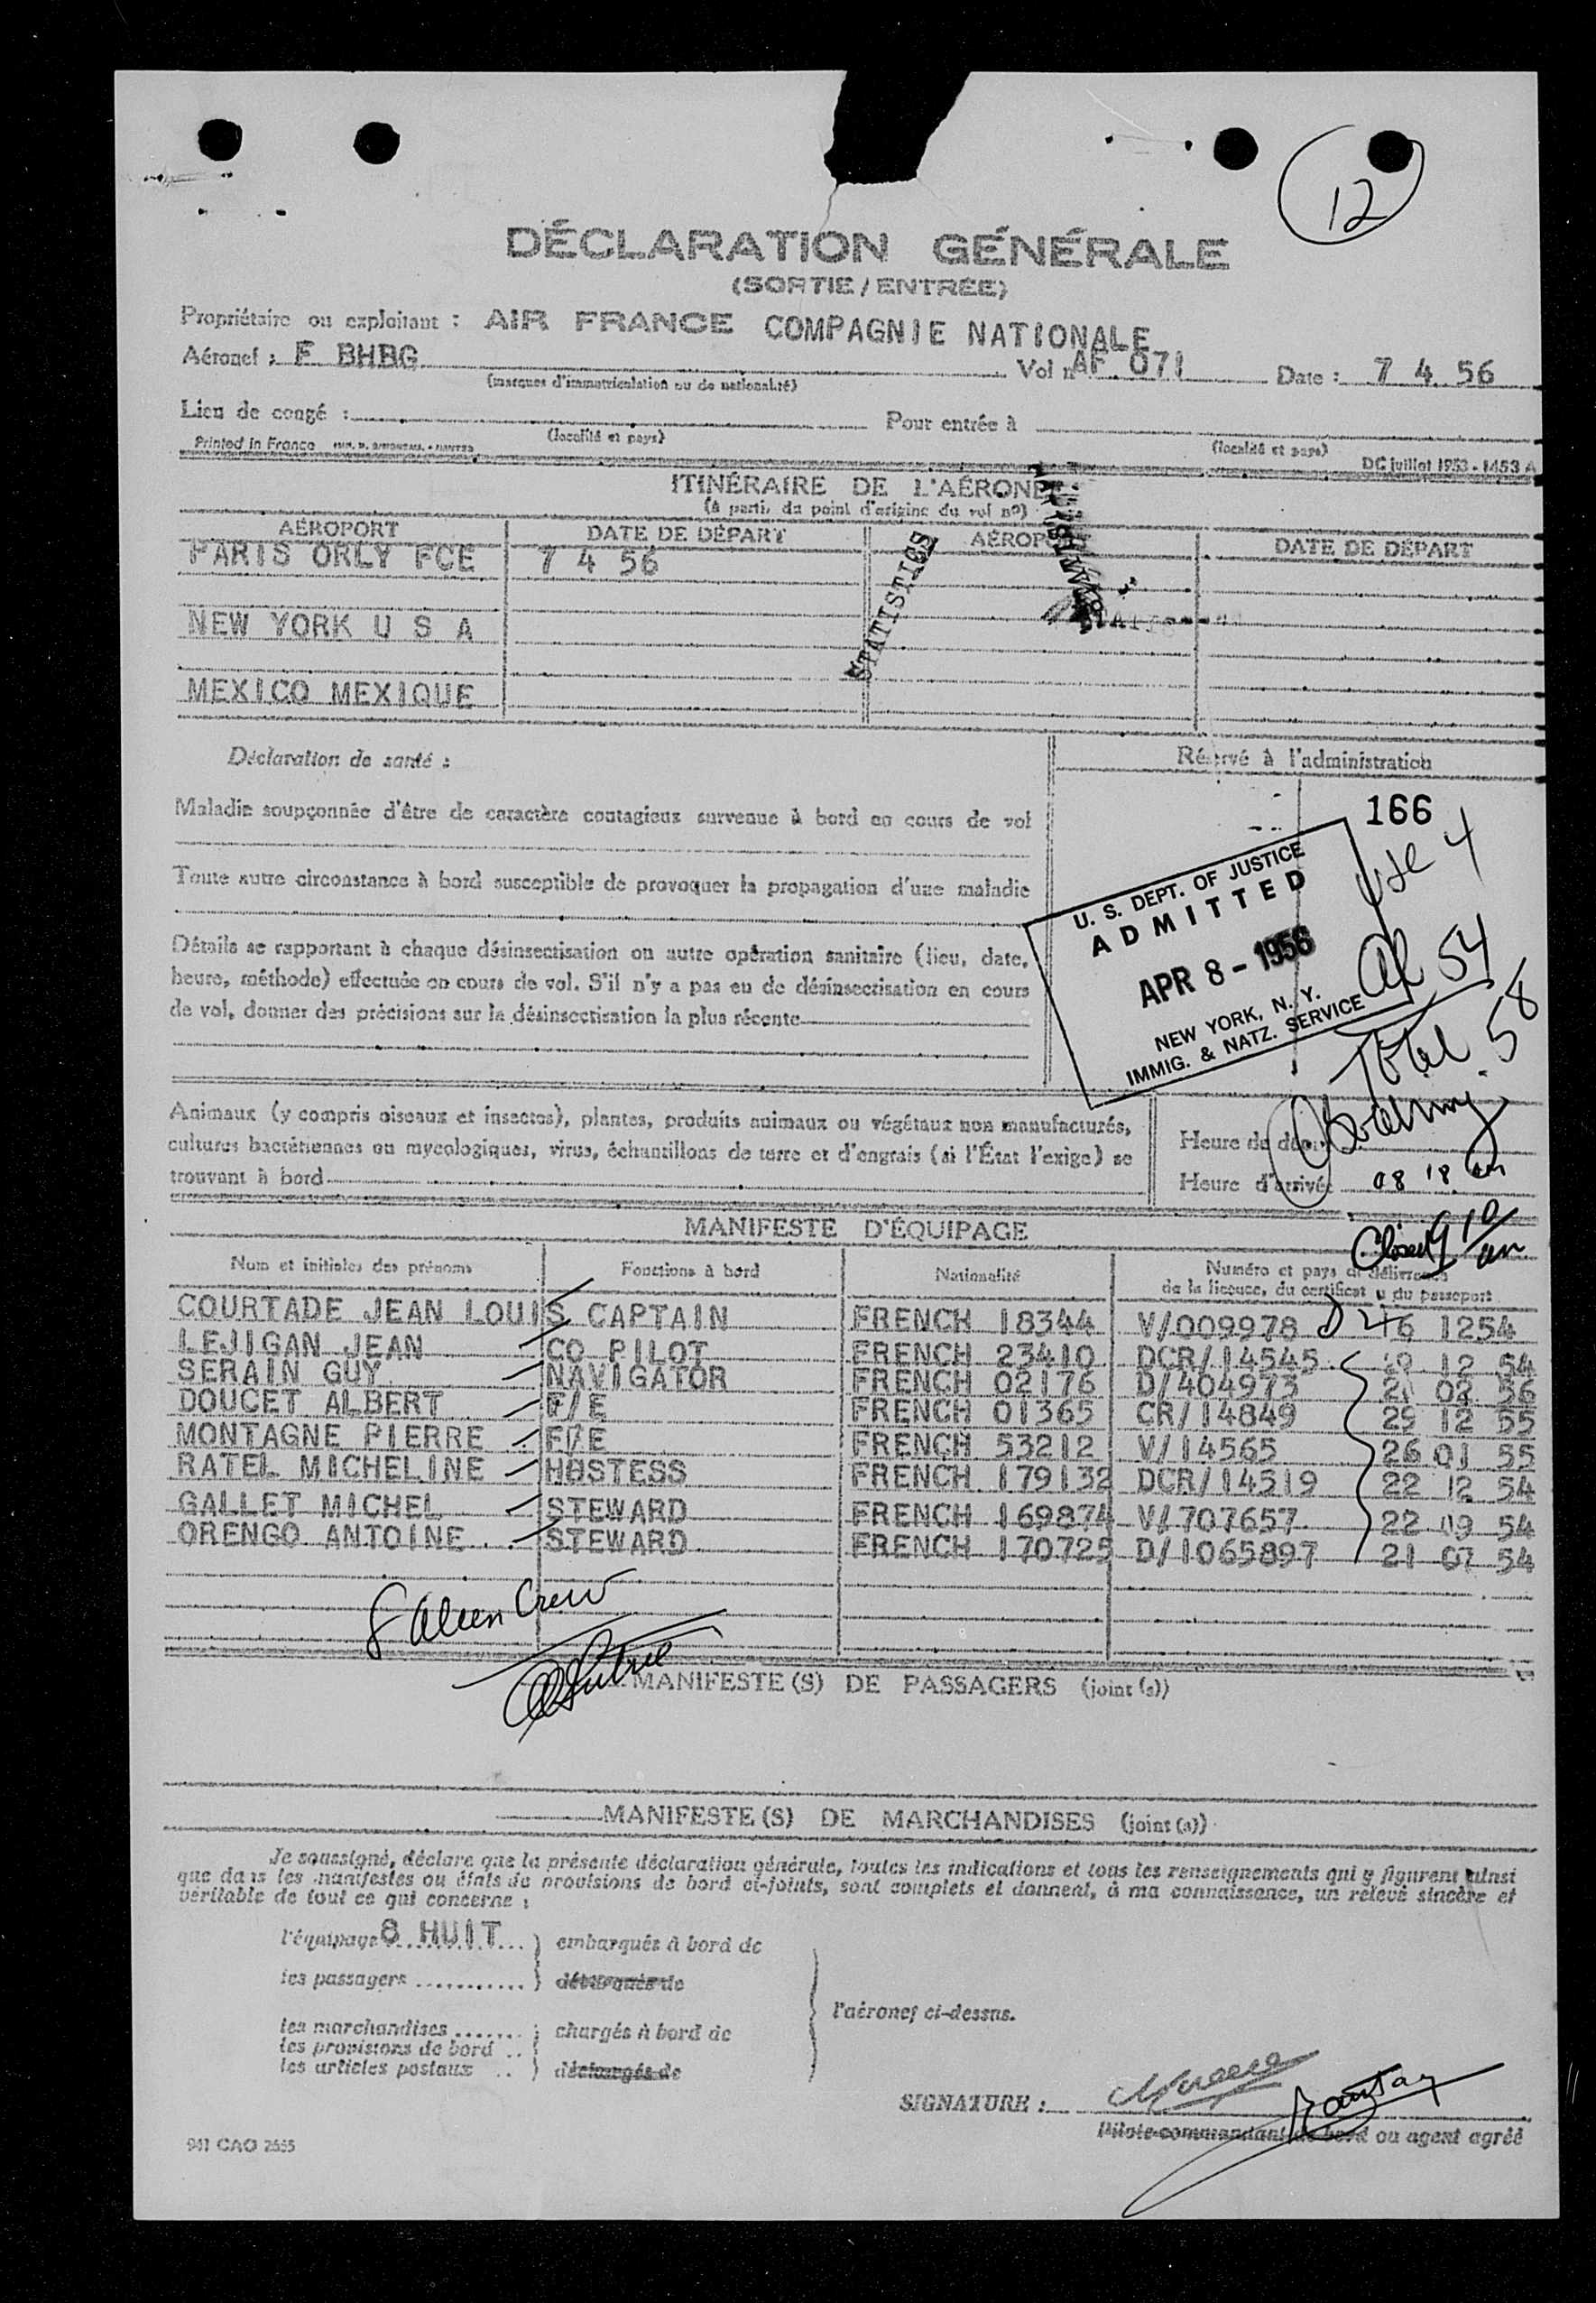 12
DÉCLARATION GÉNÉRALE
(SORTIE / ENTRÉE)
Propriétaire ou exploitant : AIR FRANCE COMPAGNIE NATIONALE
Aéronef : F BHBG Vol n AF 071 Date : 7 4 56
(marques d'immatriculation ou de nationalité)
Lieu de congé : Pour entrée à
(localité et pays) (localité et pays)
Printed in France DC juillet 1953 - 1453 A
ITINÉRAIRE DE L'AÉRONEF
(à partir du point d'origine du vol nº)
AÉROPORT DATE DE DÉPART AÉROPORT DATE DE DÉPART
PARIS ORLY FCE 7 4 56
STATISTICS
NEW YORK U S A
MEXICO MEXIQUE
Déclaration de santé : Réservé à l'administration
Maladie soupçonnée d'être de caractère contagieux survenue à bord en cours de vol
Toute autre circonstance à bord susceptible de provoquer la propagation d'une maladie
Détails se rapportant à chaque désinsectisation ou autre opération sanitaire (lieu, date,
heure, méthode) effectuée en cours de vol. S'il n'y a pas eu de désinsectisation en cours
de vol, donner des précisions sur la désinsectisation la plus récente
166
U. S. DEPT. OF JUSTICE
ADMITTED
APR 8 - 1956
NEW YORK, N. Y.
IMMIG. & NATZ. SERVICE
USC 4
al 54
Total 58
Animaux (y compris oiseaux et insectes), plantes, produits animaux ou végétaux non manufacturés,
cultures bactériennes ou mycologiques, virus, échantillons de terre et d'engrais (si l'État l'exige) se
trouvant à bord
Heure de départ
Heure d'arrivée 08 18 am
Closed 9 10 am
MANIFESTE D'ÉQUIPAGE
Nom et initiales des prénoms Fonctions à bord Nationalité Numéro et pays de délivrance
de la licence, du certificat ou du passeport
COURTADE JEAN LOUIS CAPTAIN FRENCH 18344 V/009978 16 1254
LEJIGAN JEAN CO PILOT FRENCH 23410 DCR/14545 12 54
SERAIN GUY NAVIGATOR FRENCH 02176 D/404973 02 56
DOUCET ALBERT F/E FRENCH 01365 CR/14849 29 12 55
MONTAGNE PIERRE F/E FRENCH 53212 V/14565 26 01 55
RATEL MICHELINE HOSTESS FRENCH 179132 DCR/14519 22 12 54
GALLET MICHEL STEWARD FRENCH 169874 V/707657 22 09 54
ORENGO ANTOINE STEWARD FRENCH 170725 D/1065897 21 07 54
8 Alien Crew
MANIFESTE (S) DE PASSAGERS (joint (s))
MANIFESTE (S) DE MARCHANDISES (joint (s))
Je soussigné, déclare que la présente déclaration générale, toutes les indications et tous les renseignements qui y figurent ainsi
que dans les manifestes ou états de provisions de bord ci-joints, sont complets et donnent, à ma connaissance, un relevé sincère et
véritable de tout ce qui concerne :
l'équipage 8 HUIT embarqués à bord de
les passagers débarqués de
l'aéronef ci-dessus.
les marchandises chargés à bord de
les provisions de bord
les articles postaux déchargés de
SIGNATURE :
Pilote commandant de bord ou agent agréé
941 CAO 2555